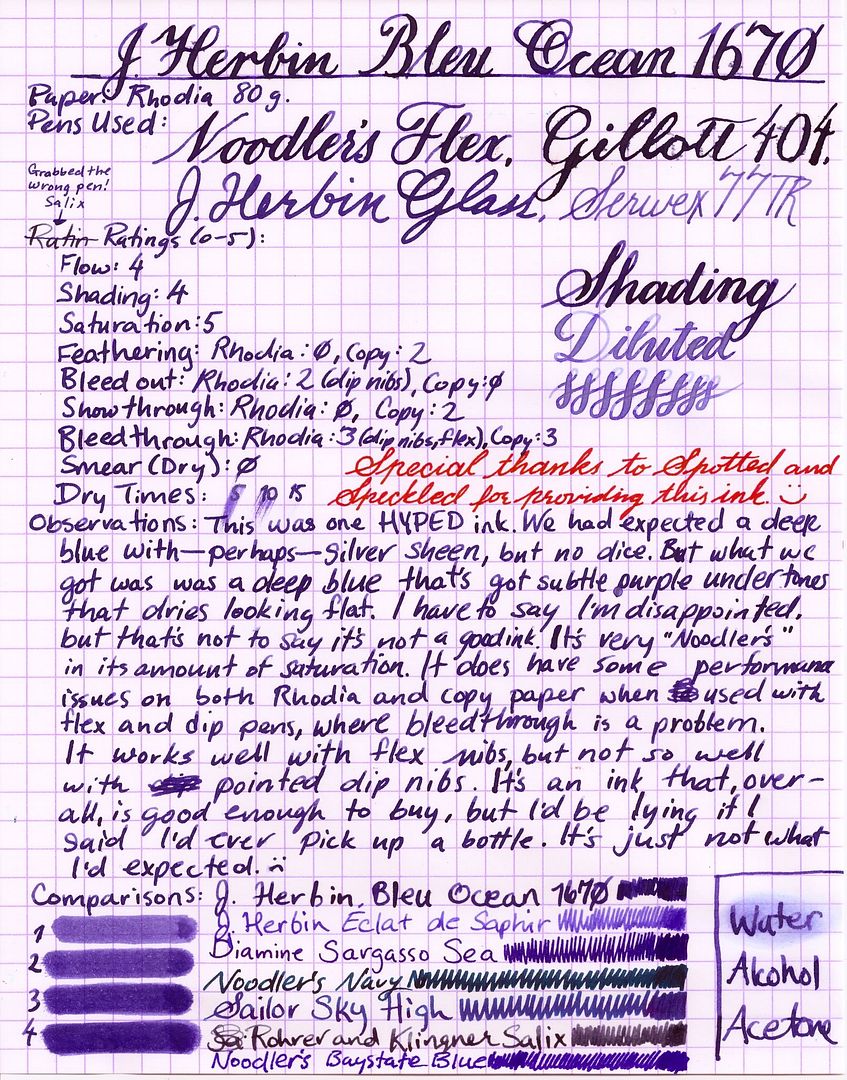 J. Herbin Bleu Ocean 1670
Paper: Rhodia 80g.
Pens Used:
Noodler's Flex, Gillott 404,
Grabbed the
wrong pen!
Salix
J. Herbin Glass, Serwex 77TR
Ratin Ratings (0-5):
Flow: 4
Shading: 4
Saturation: 5
Feathering: Rhodia: 0, Copy: 2
Bleed out: Rhodia: 2 (dip nibs), Copy: 0
Show through: Rhodia: 0, Copy: 2
Bleedthrough: Rhodia: 3 (dip nibs, flex), Copy: 3
Smear (Dry): 0
Dry Times: 5 10 15
Shading
Diluted
Special thanks to Spotted and
Speckled for providing this ink. :)
Observations: This was one HYPED ink. We had expected a deep
blue with—perhaps—silver sheen, but no dice. But what we
got was was a deep blue that's got subtle purple undertones
that dries looking flat. I have to say I'm disappointed,
but that's not to say it's not a good ink. It's very "Noodler's"
in its amount of saturation. It does have some performance
issues on both Rhodia and copy paper when used with
flex and dip pens, where bleedthrough is a problem.
It works well with flex nibs, but not so well
with pointed dip nibs. It's an ink that, over-
all, is good enough to buy, but I'd be lying if I
said I'd ever pick up a bottle. It's just not what
I'd expected. :(
Comparisons: J. Herbin Bleu Ocean 1670
J. Herbin Eclat de Saphir
Diamine Sargasso Sea
Noodler's Navy
Sailor Sky High
Rohrer and Klingner Salix
Noodler's Baystate Blue
1
2
3
4
Water
Alcohol
Acetone